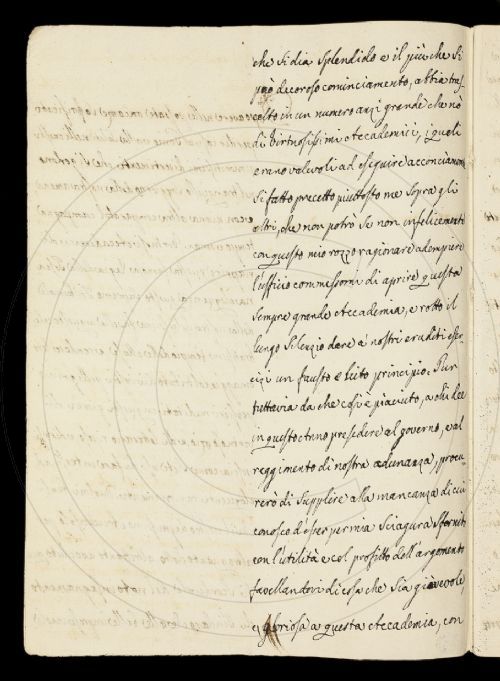 che si dia splendido e il più che si
può decoroso cominciamento, abbia tras-
celto in un numero anzi grande che nò
di Virtuosissimi Accademici, i quali
erano valevoli ad eseguire acconciamente
sì fatto precetto piuttosto me sopra gli
altri, che non potrò se non infelicemente
con questo mio rozzo ragionare adempiere
l'ufficio commissomi di aprire questa
sempre grande Accademia, e rotto il
lungo silenzio dare a' nostri eruditi eser-
cizi un fausto e lieto principio. Pur
tuttavia da che così è piaciuto, a chi dee
in quest'Anno presedere al governo, e al
reggimento di nostra adunanza, procu-
rerò di supplire alla mancanza di cui
conosco d'esser per mia sciagura sfornito
con l'utilità e col profitto dell'argomento
favellandovi di cosa che sia giovevole,
e gloriosa a questa Accademia, con